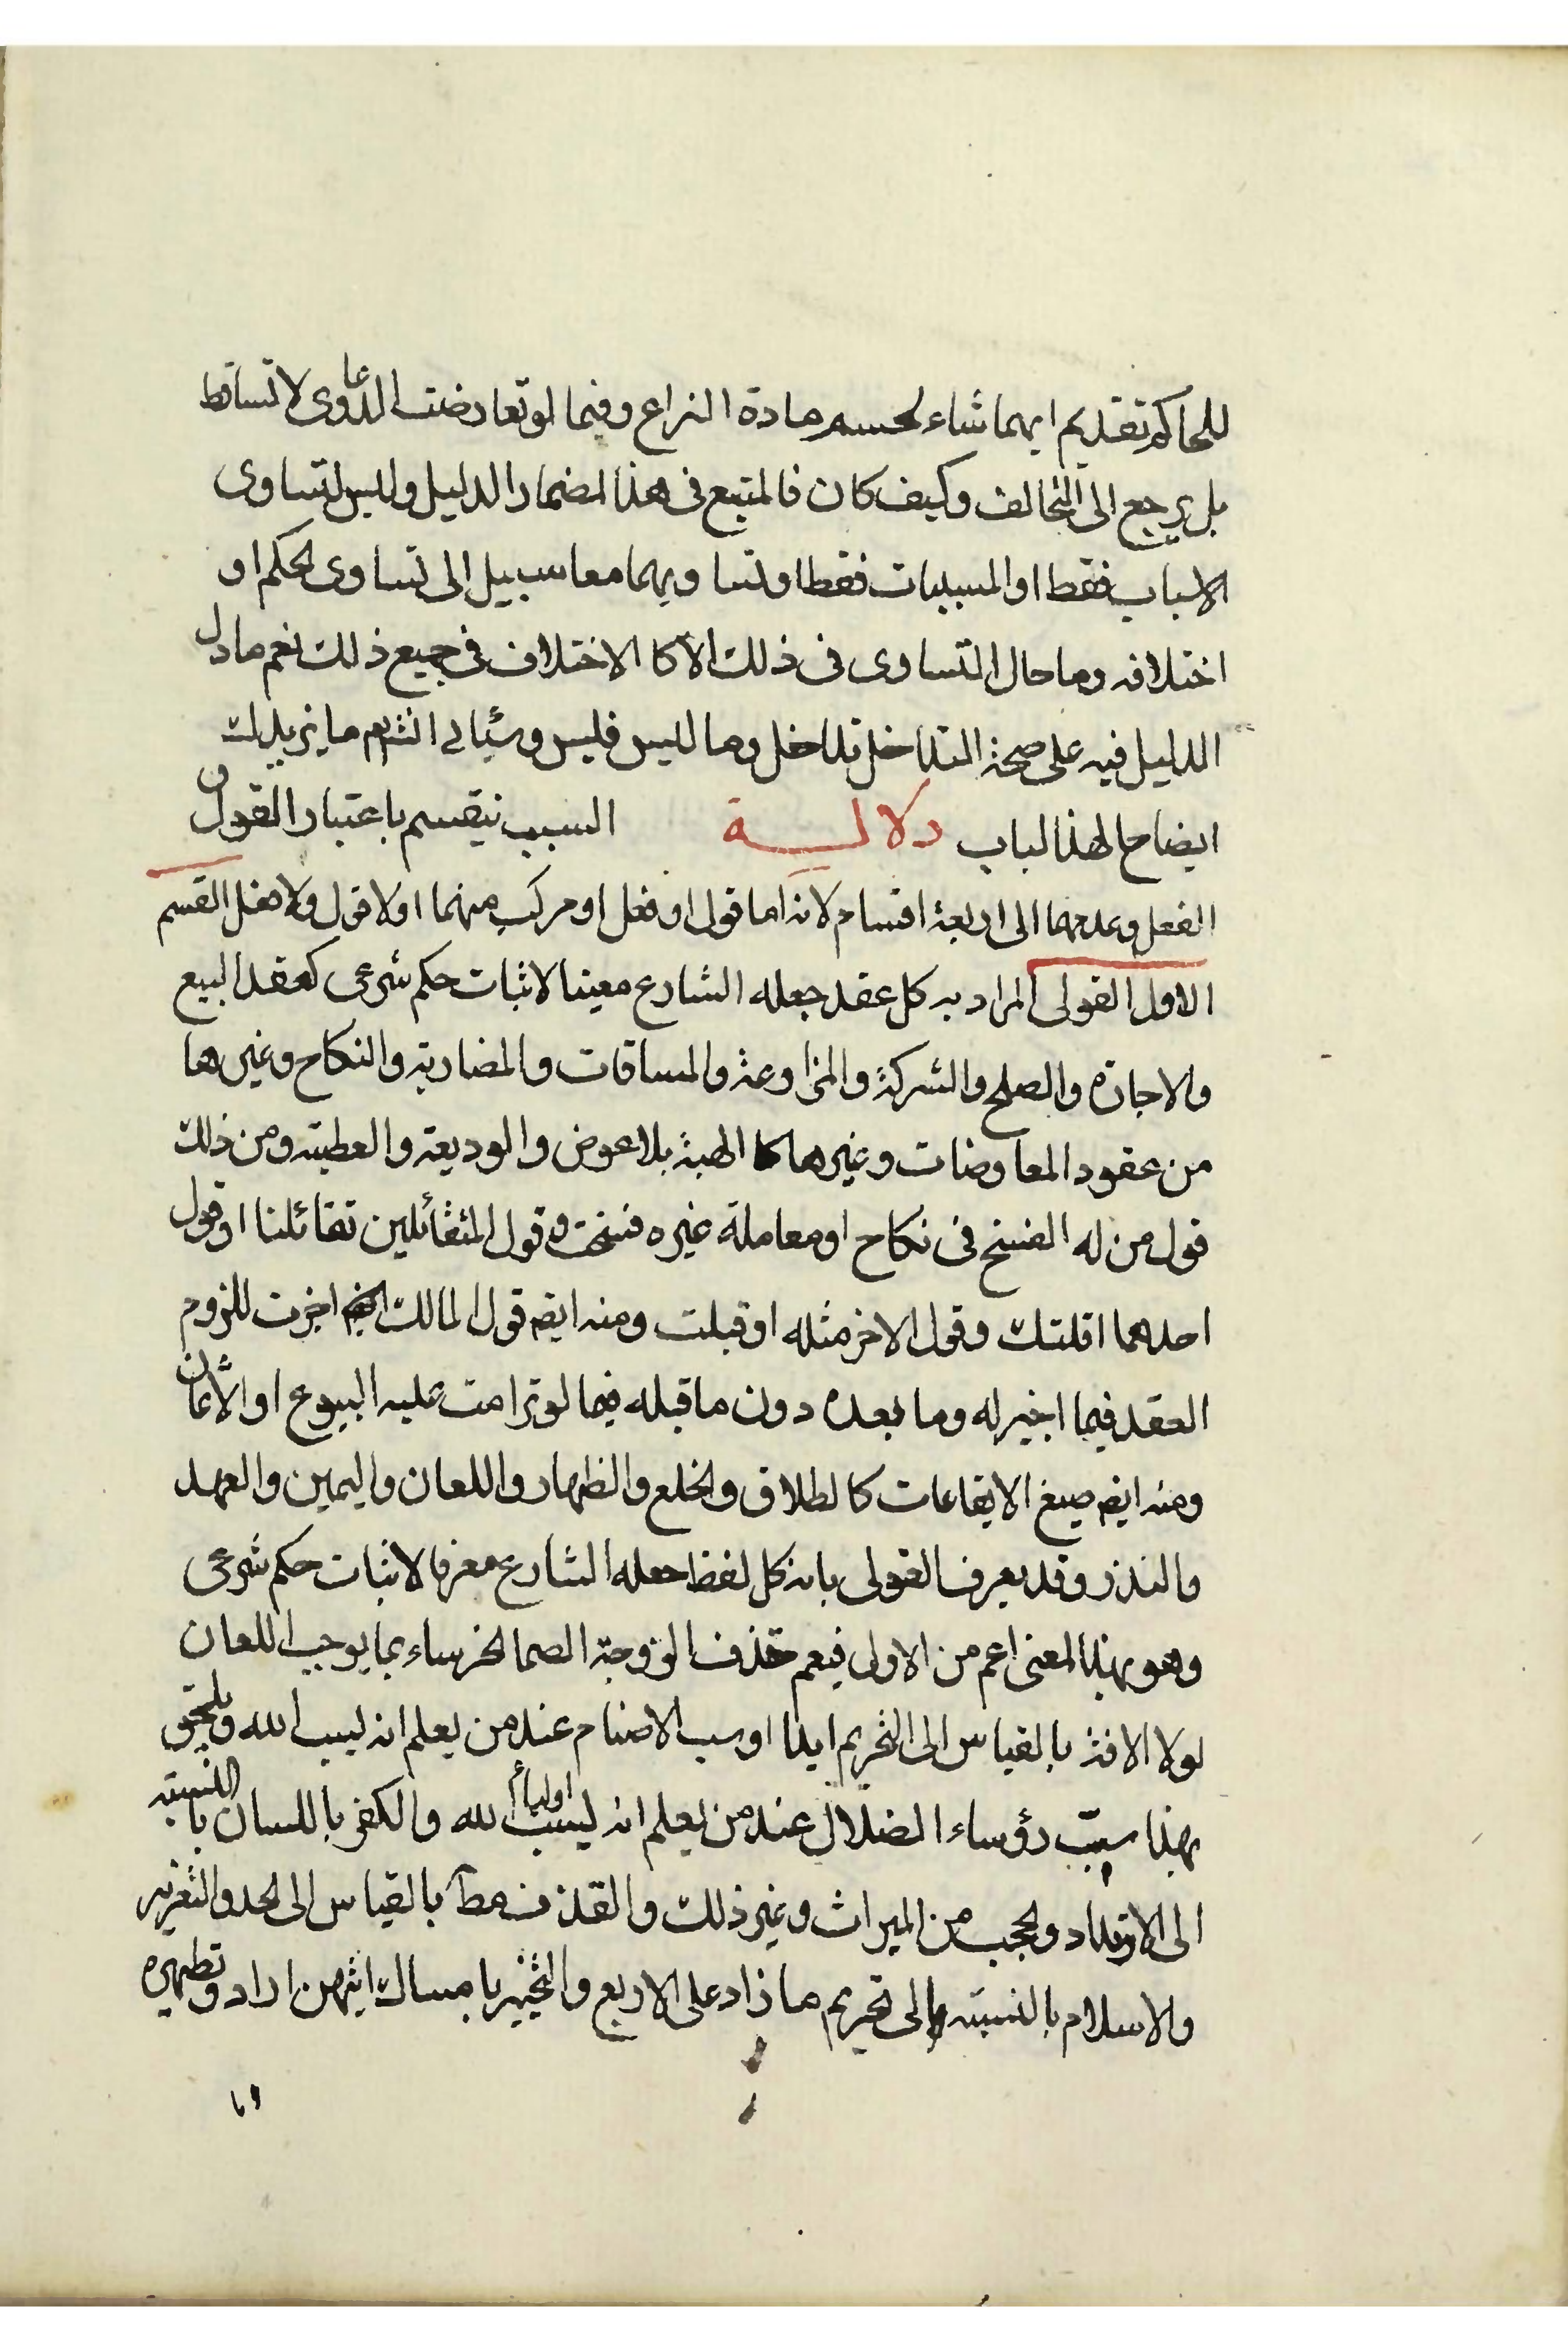 للحاكم تقديم ايهما شاء لحسم مادة النزاع وفيما لو تعارضت الدعاوى لا تساقط
بل يرجع الى التخالف وكيف كان فالمتبع فى هذا لمضمار الدليل وليس لتساوى
الاسباب فقط او المسببات فقط او تساويهما معا سبيل الى تساوى الحكم او
اختلافه وما حال التساوى فى ذلك الا كا الاختلاف فى جميع ذلك نعم ما دل
الدليل فيه على صحة التداخل تداخل وما لليس فليس وسيأتى انش م ما يزيدك
ايضاحا لهذا لباب دلالـــة السبب ينقسم باعتبار القول و
الفعل وعدمهما الى اربعة اقسام لانه اما قول او فعل او مركب منهما او لا قول ولا فعل القسم
الاول القولى المراد به كل عقد جعله الشارع معينا لاثبات حكم شرعى كعقد البيع
والاجارة والصلح والشركة والمزاوعة والمساقات والمضاربة والنكاح وغيرها
من عقود المعاوضات وغيرها كا الهبة بلا عوض والوديعة والعطية ومن ذلك
قول من له الفسخ فى نكاح او معاملة غيره فسخت وقول المتقائلين تقائلنا او قول
احدهما اقلتك وقول الاخر مثله او قبلت ومنه ايضا قول المالك اجزت للزوم
العقد فيما اجيز له وما بعده دون ما قبله فيما لو ترامت عليه البيوع او الأثمان
ومنه ايضا صيغ الايقاعات كالطلاق والخلع والظهار واللعان واليمين والعهد
والنذر وقد يعرف القولى بانه كل لفظ جعله الشارع معرفا لاثبات حكم شرعى
وهو بهذا المعنى اعم من الاولى فيعم قذف الزوجة الصما الخرساء بما يوجب اللعان
لولا الافة بالقياس الى التحريم ابدا او سب الاصنام عند من يعلم انه ليسب الله ويلحق
بهذا سبّ رؤساء الضلال عند من يعلم انه ليسب اولياء الله والكفر باللسان بالنسبة
الى الارتداد والحجب من الميراث وغير ذلك والقذف مط بالقياس الى الحد والتعزير
والاسلام بالنسبة الى تحريم ما زاد على الاربع والتخيير بامساك ايتهن اراد وتطهيره